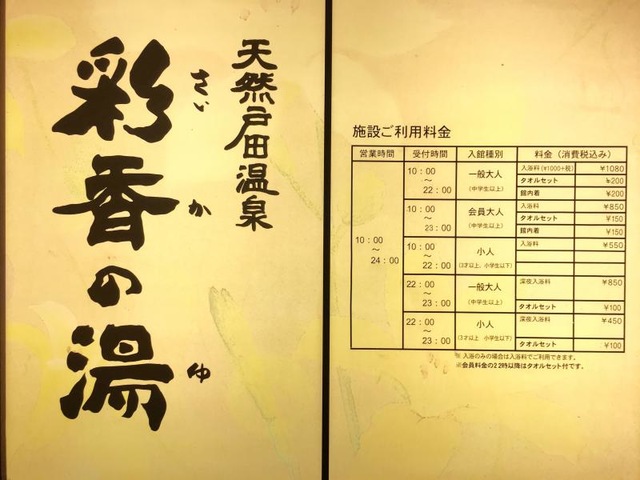 天然戸田温泉
彩香の湯
さい か ゆ
施設ご利用料金
営業時間 受付時間 入館種別 料金（消費税込み）
10：00
～
24：00
10：00
～
22：00
一般大人
（中学生以上）
入浴料（¥1000＋税） ¥1080
タオルセット ¥200
館内着 ¥200
10：00
～
23：00
会員大人
（中学生以上）
入浴料 ¥850
タオルセット ¥150
館内着 ¥150
10：00
～
22：00
小人
（3才以上、小学生以下）
入浴料 ¥550
22：00
～
23：00
一般大人
（中学生以上）
深夜入浴料 ¥850
タオルセット ¥100
22：00
～
23：00
小人
（3才以上 小学生以下）
深夜入浴料 ¥450
タオルセット ¥100
※入浴のみの場合は入浴料でご利用できます。
※会員料金の22時以降はタオルセット付です。